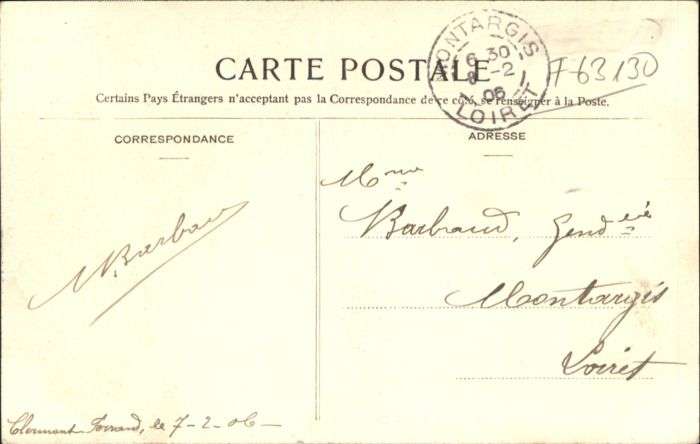 MONTARGIS
6 30
8 -2
06
LOIRET
F-63130
CARTE POSTALE
Certains Pays Étrangers n'acceptant pas la Correspondance de ce côté, se renseigner à la Poste.
CORRESPONDANCE
ADRESSE
Mme
Barbaud, Gendrie
Montargis
Loiret
Barbaud
Clermont-Ferrand, le 7-2-06-